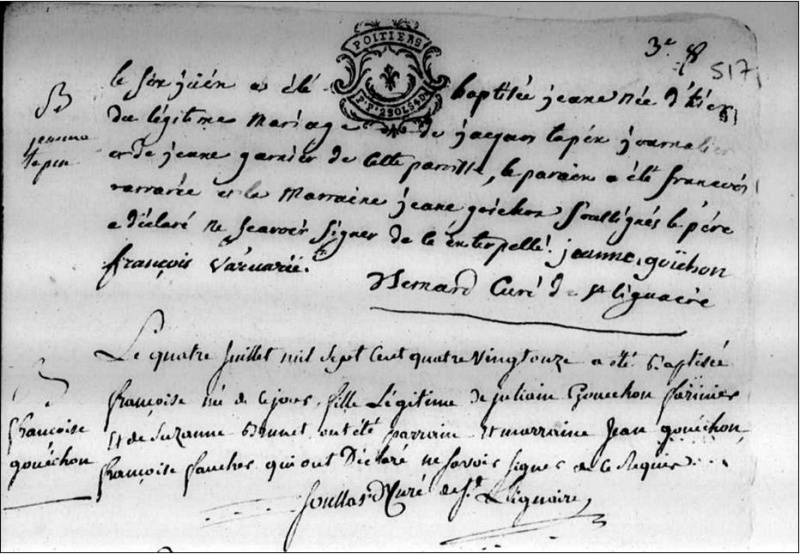 3e 8 517
POITIERS
le six juin a été baptisée jeane née d'hier
du légitime mariage de jacques papin journalier
B
jeanne
papin
et de jeane garnier de cette paroisse, le parain a été francois
et la marraine jeane goichon soussignés le père
a déclaré ne scavoir signer de ce enterpellé. jeanne goüchon
françois
Bernard Curé de st liguaire
Le quatre juillet mil sept cent quatre vingt onze a été baptisée
B
françoise
gouéchon
françoise née de ce jour, fille Légitime de juliain Gouechon farinier
et de Suzanne Bonnet ont été parrain et marraine Jean gouéchon,
françoise qui ont Déclaré ne savoir signer de ce Requis.
Curé de St Liguaire